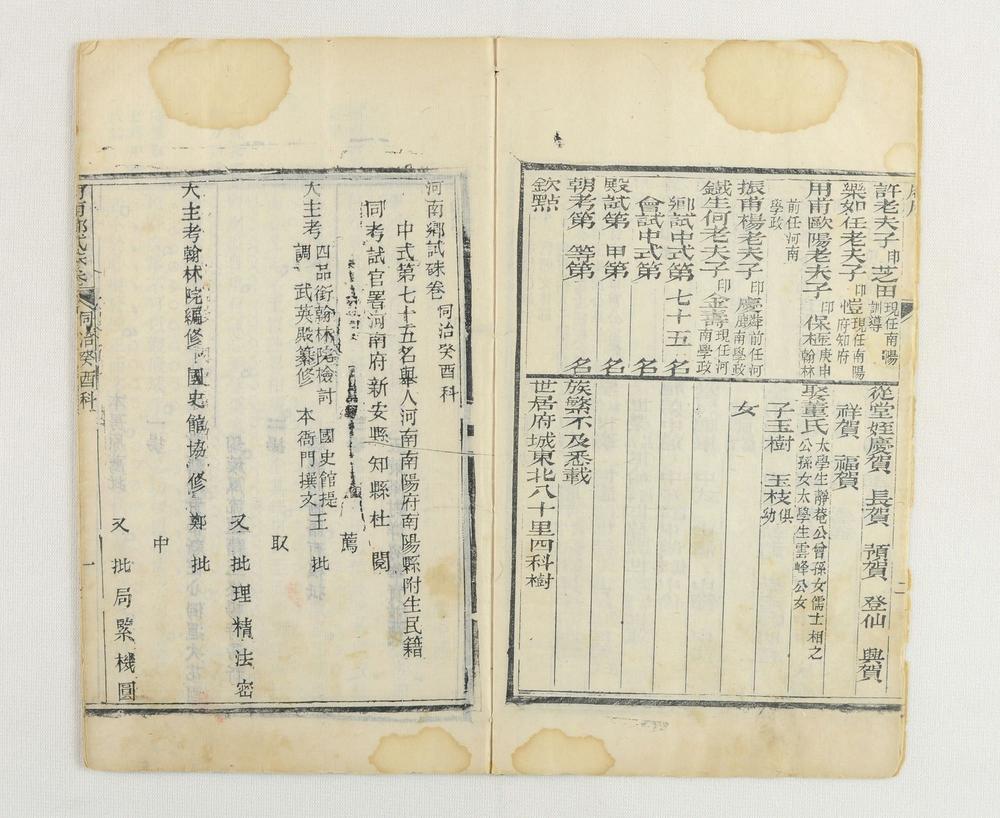 許老夫子印芝田現任南陽訓導
樂如任老夫子印愷現任南陽府知府
用甫歐陽老夫子印保極庚申翰林前任河南學政
振甫楊老夫子印慶麟前任河南學政
鐵生何老夫子印金壽現任河南學政
鄉試中式第七十五名
會試中式第 名
殿試第 甲第 名
朝考第 等第 名
欽點
從堂姪慶賀 長賀 預賀 登仙 興賀
祥賀 福賀
娶董氏太學生靜菴公曾孫女儒士相之公孫女太學生雲峰公女
子玉樹 玉枝俱幼
女
族繁不及悉載
世居府城東北八十里四科樹
河南鄉試硃卷 同治癸酉科
中式第七十五名舉人河南南陽府南陽縣附生民籍
同考試官署河南府新安縣知縣杜 閱
薦
大主考四品銜翰林院檢討 國史館提調 武英殿纂修 本衙門撰文王 批
取
又批理精法密
大主考翰林院編修 國史館協修鄭 批
中
又批局緊機圓
同治癸酉科
一